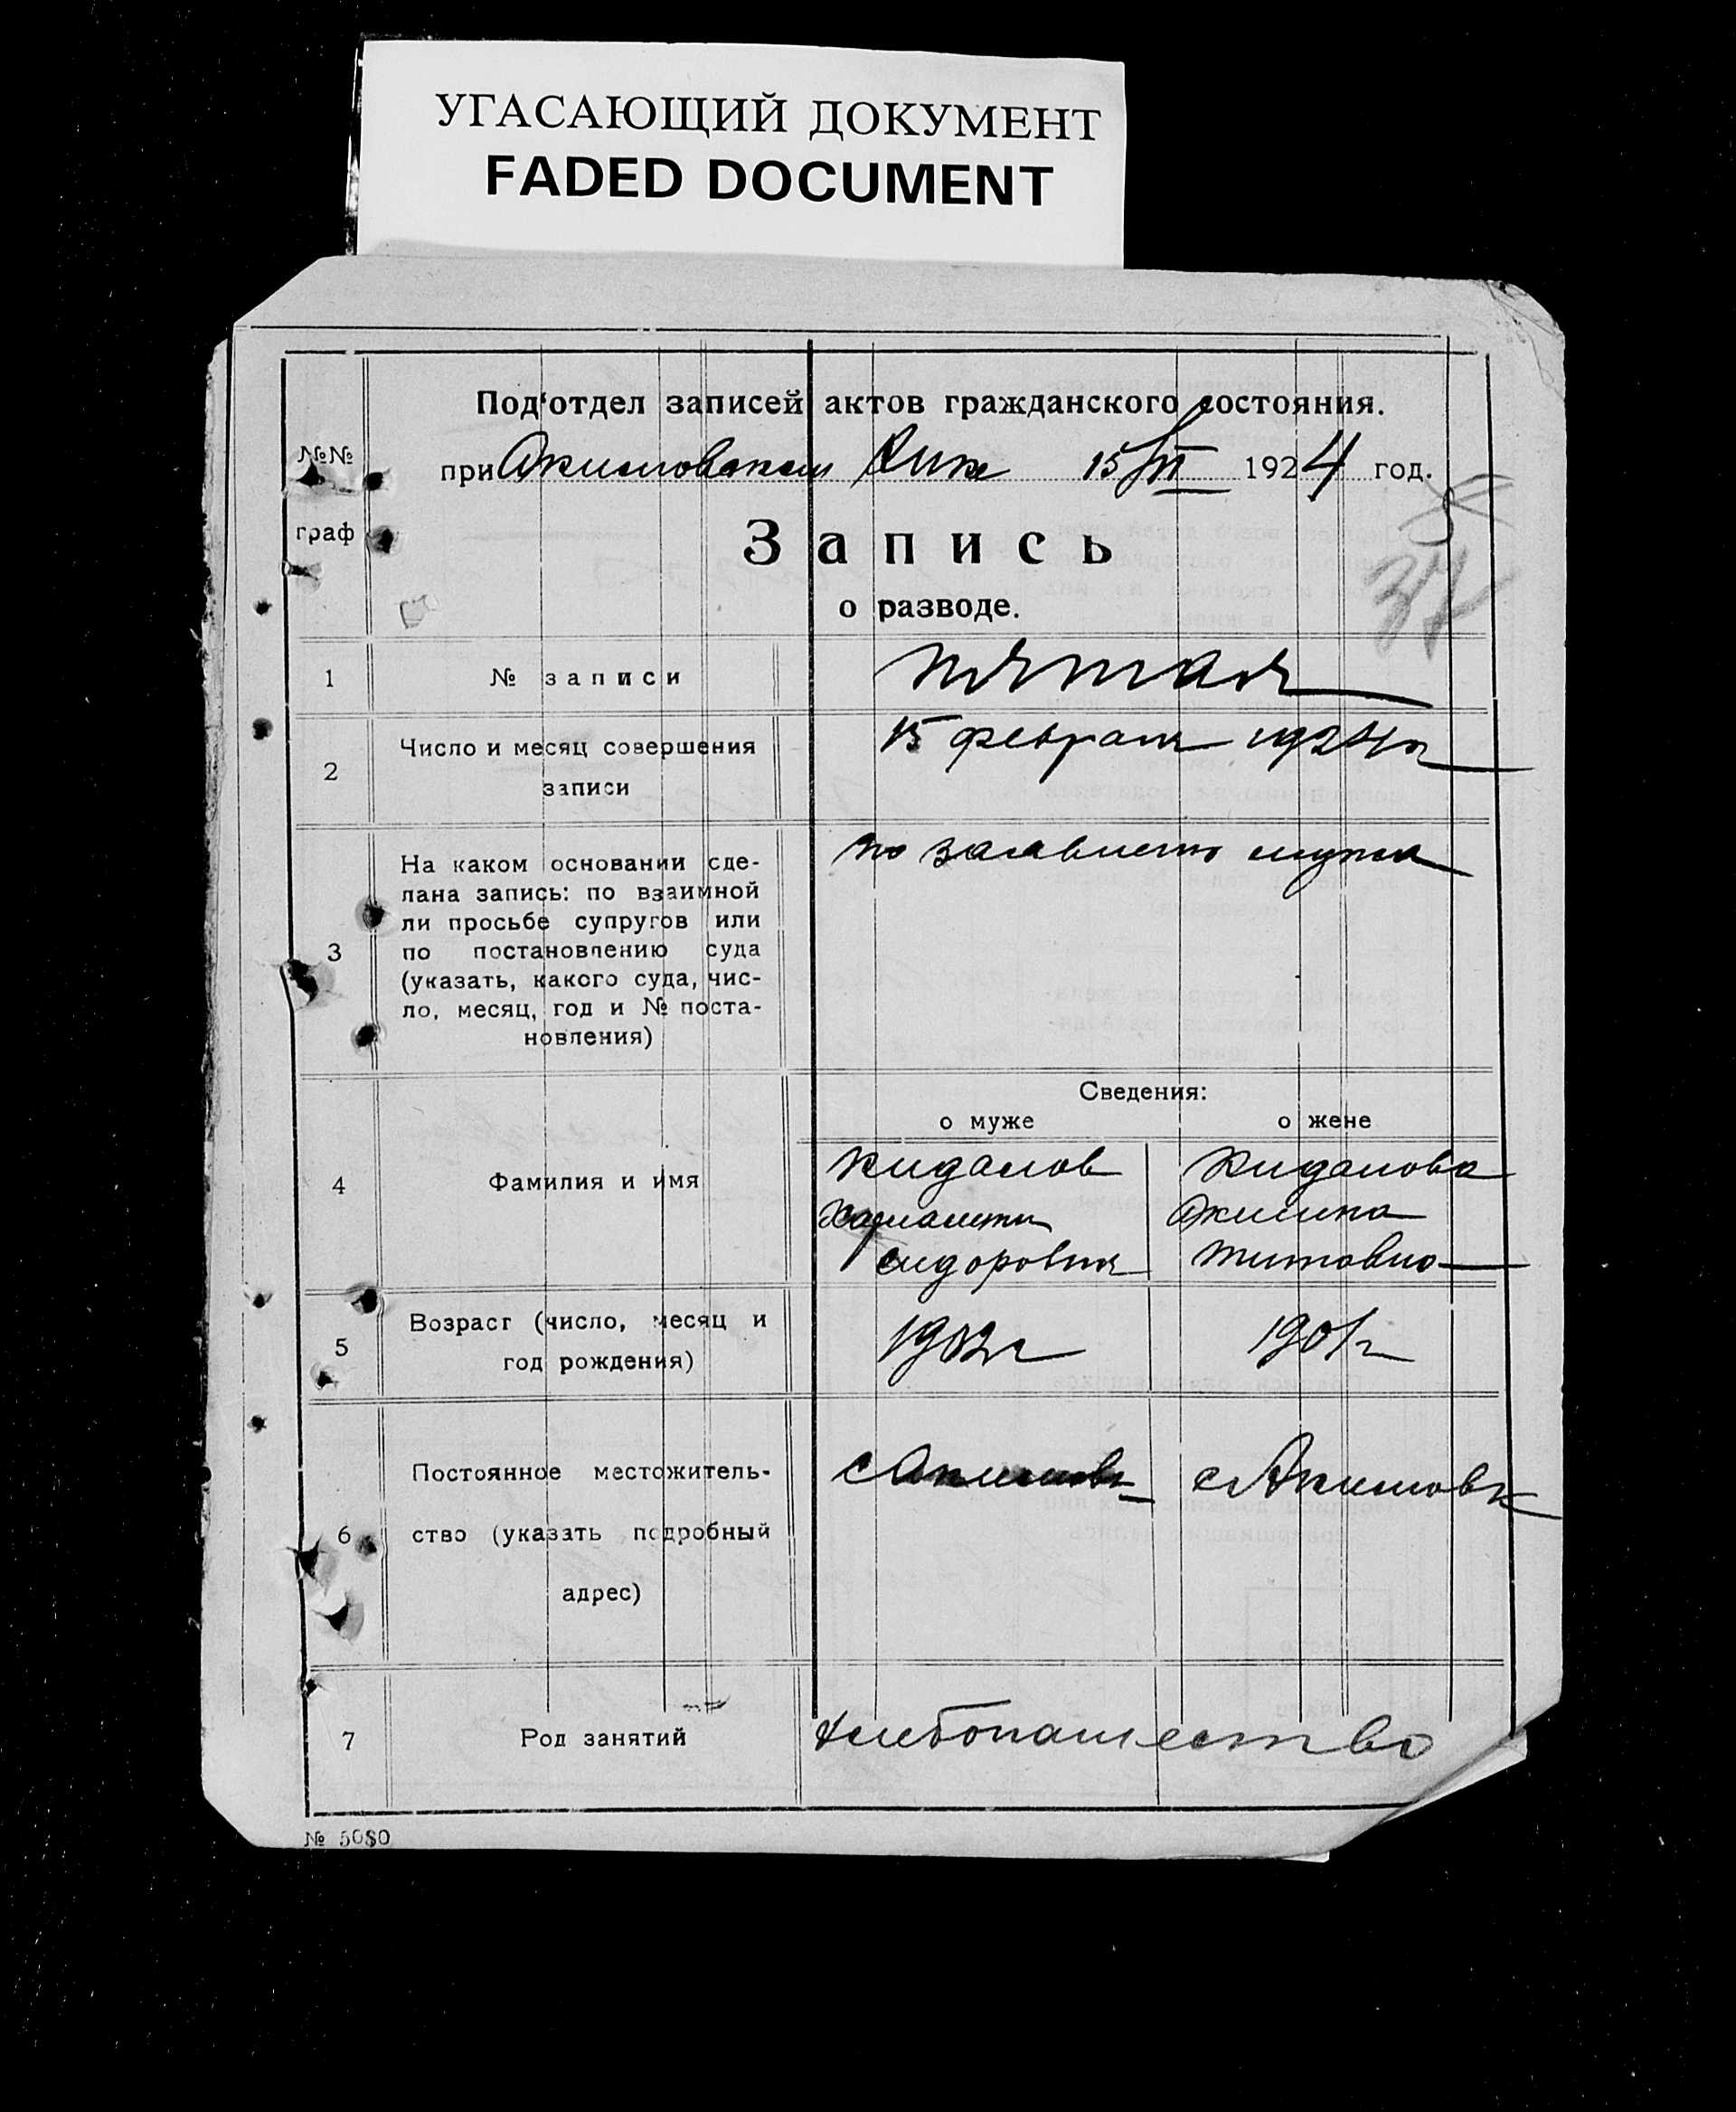 УГАСАЮЩИЙ ДОКУМЕНТ
FADED DOCUMENT
Под‘отдел записей актов гражданского состояния.
№№
граф
при Акимовском 15/II 1924 год.
37
Запись
о разводе.
1 № записи пятая
2 Число и месяц совершения
записи
15 февраля 1924 г
3 На каком основании сде-
лана запись: по взаимной
ли просьбе супругов или
по постановлению суда
(указать, какого суда, чис-
ло, месяц, год и № поста-
новления)
по мужа
Сведения:
о муже о жене
4 Фамилия и имя
Кидалов Кидалова
Акилина
Сидоровия Титовна
5 Возраст (число, месяц и
год рождения)
1902 г 1901 г
6 Постоянное местожитель-
ство (указать подробный
адрес)
с Акимовк с Акимовк
7 Род занятий хлебопашество
№ 5080